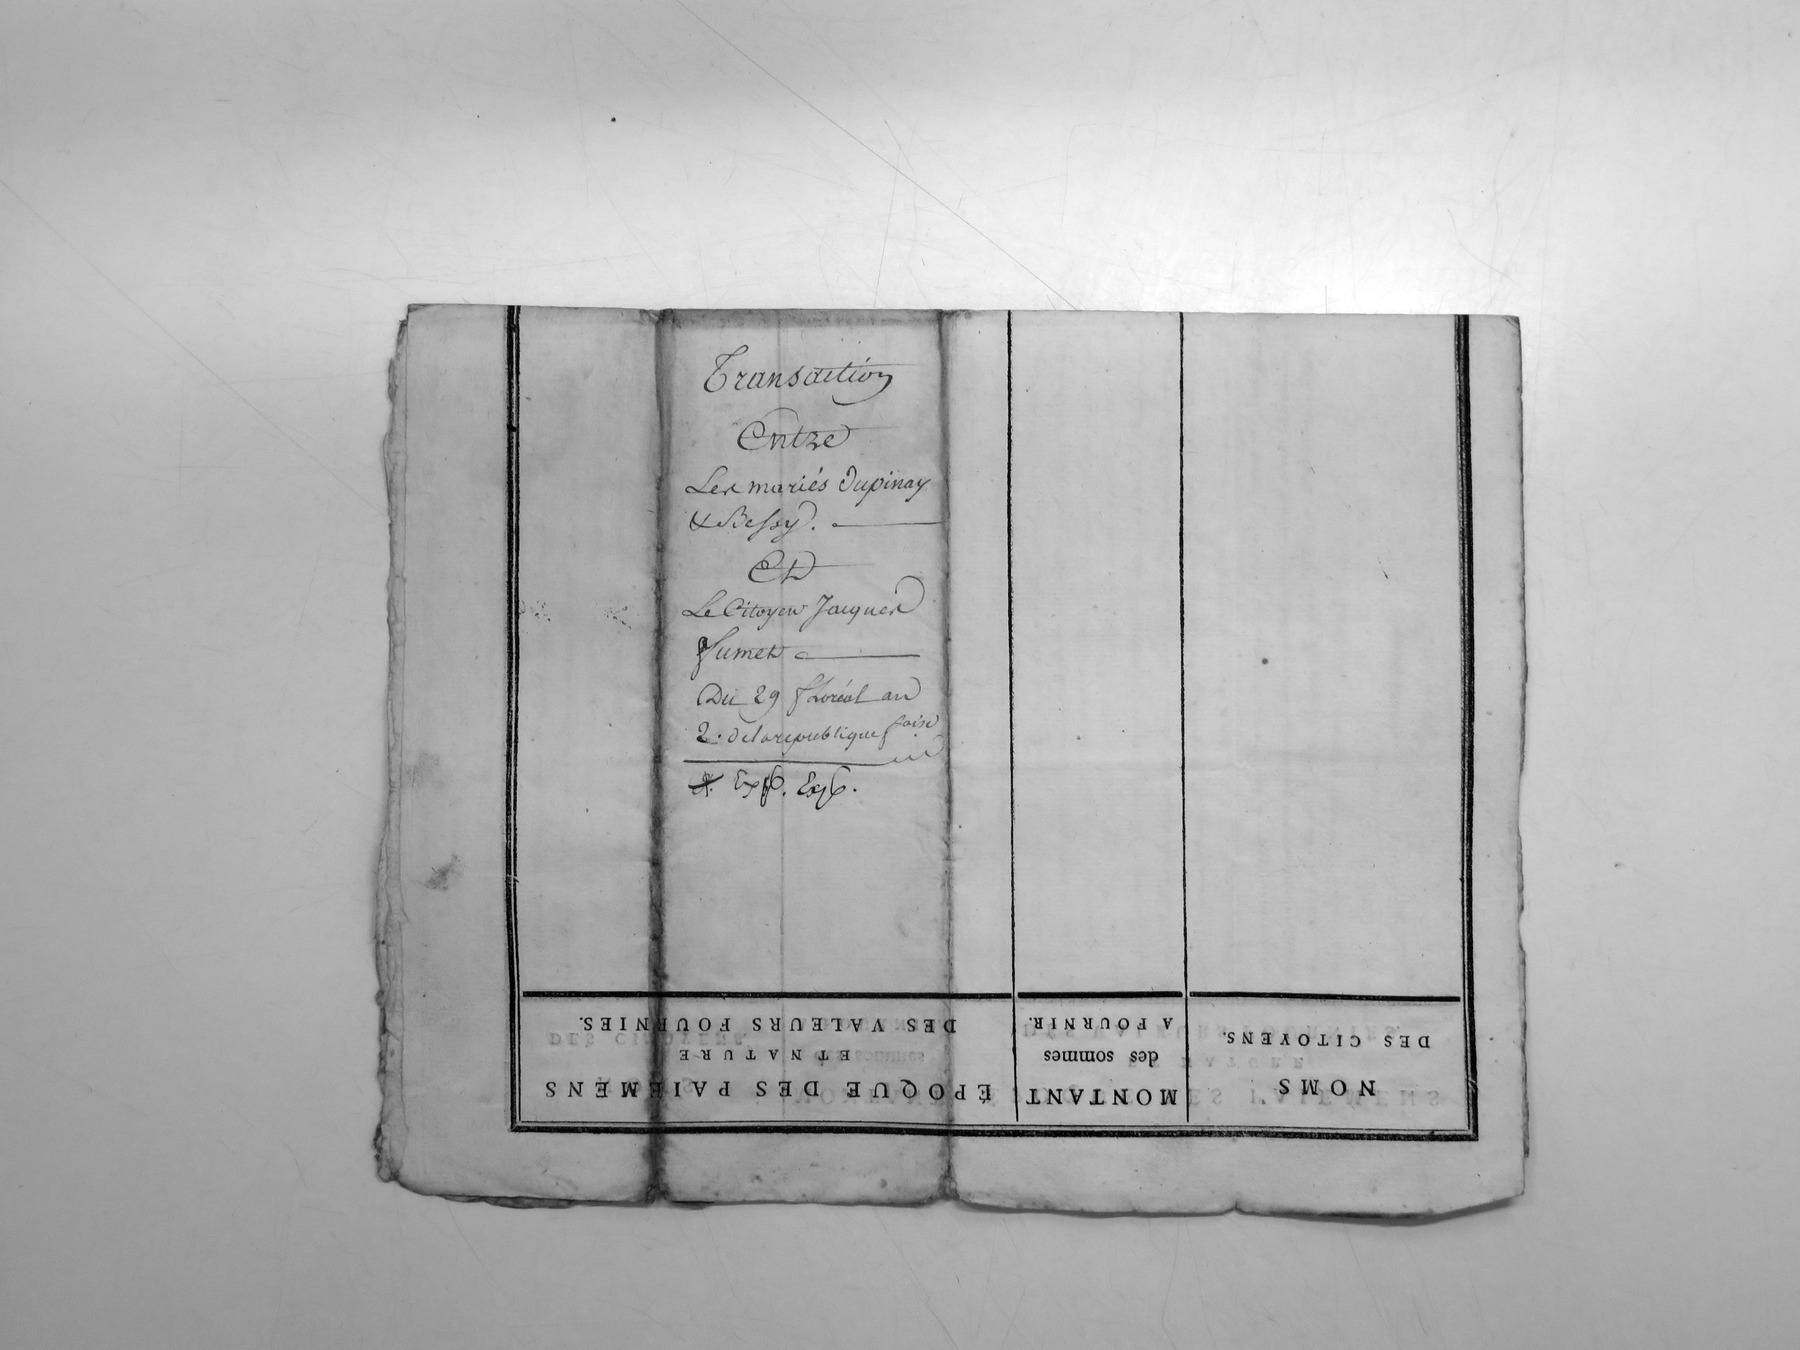 Transaction
Entre
Les mariés Dupinay
& Bessy.
Et
Le Citoyen Jacques
fumet
Du 29 floréal an
2. de la republique fraise
Exp. Exp.
NOMS
DES CITOYENS.
MONTANT
des sommes
A FOURNIR.
ÉPOQUE DES PAIEMENS
ET NATURE
DES VALEURS FOURNIES.